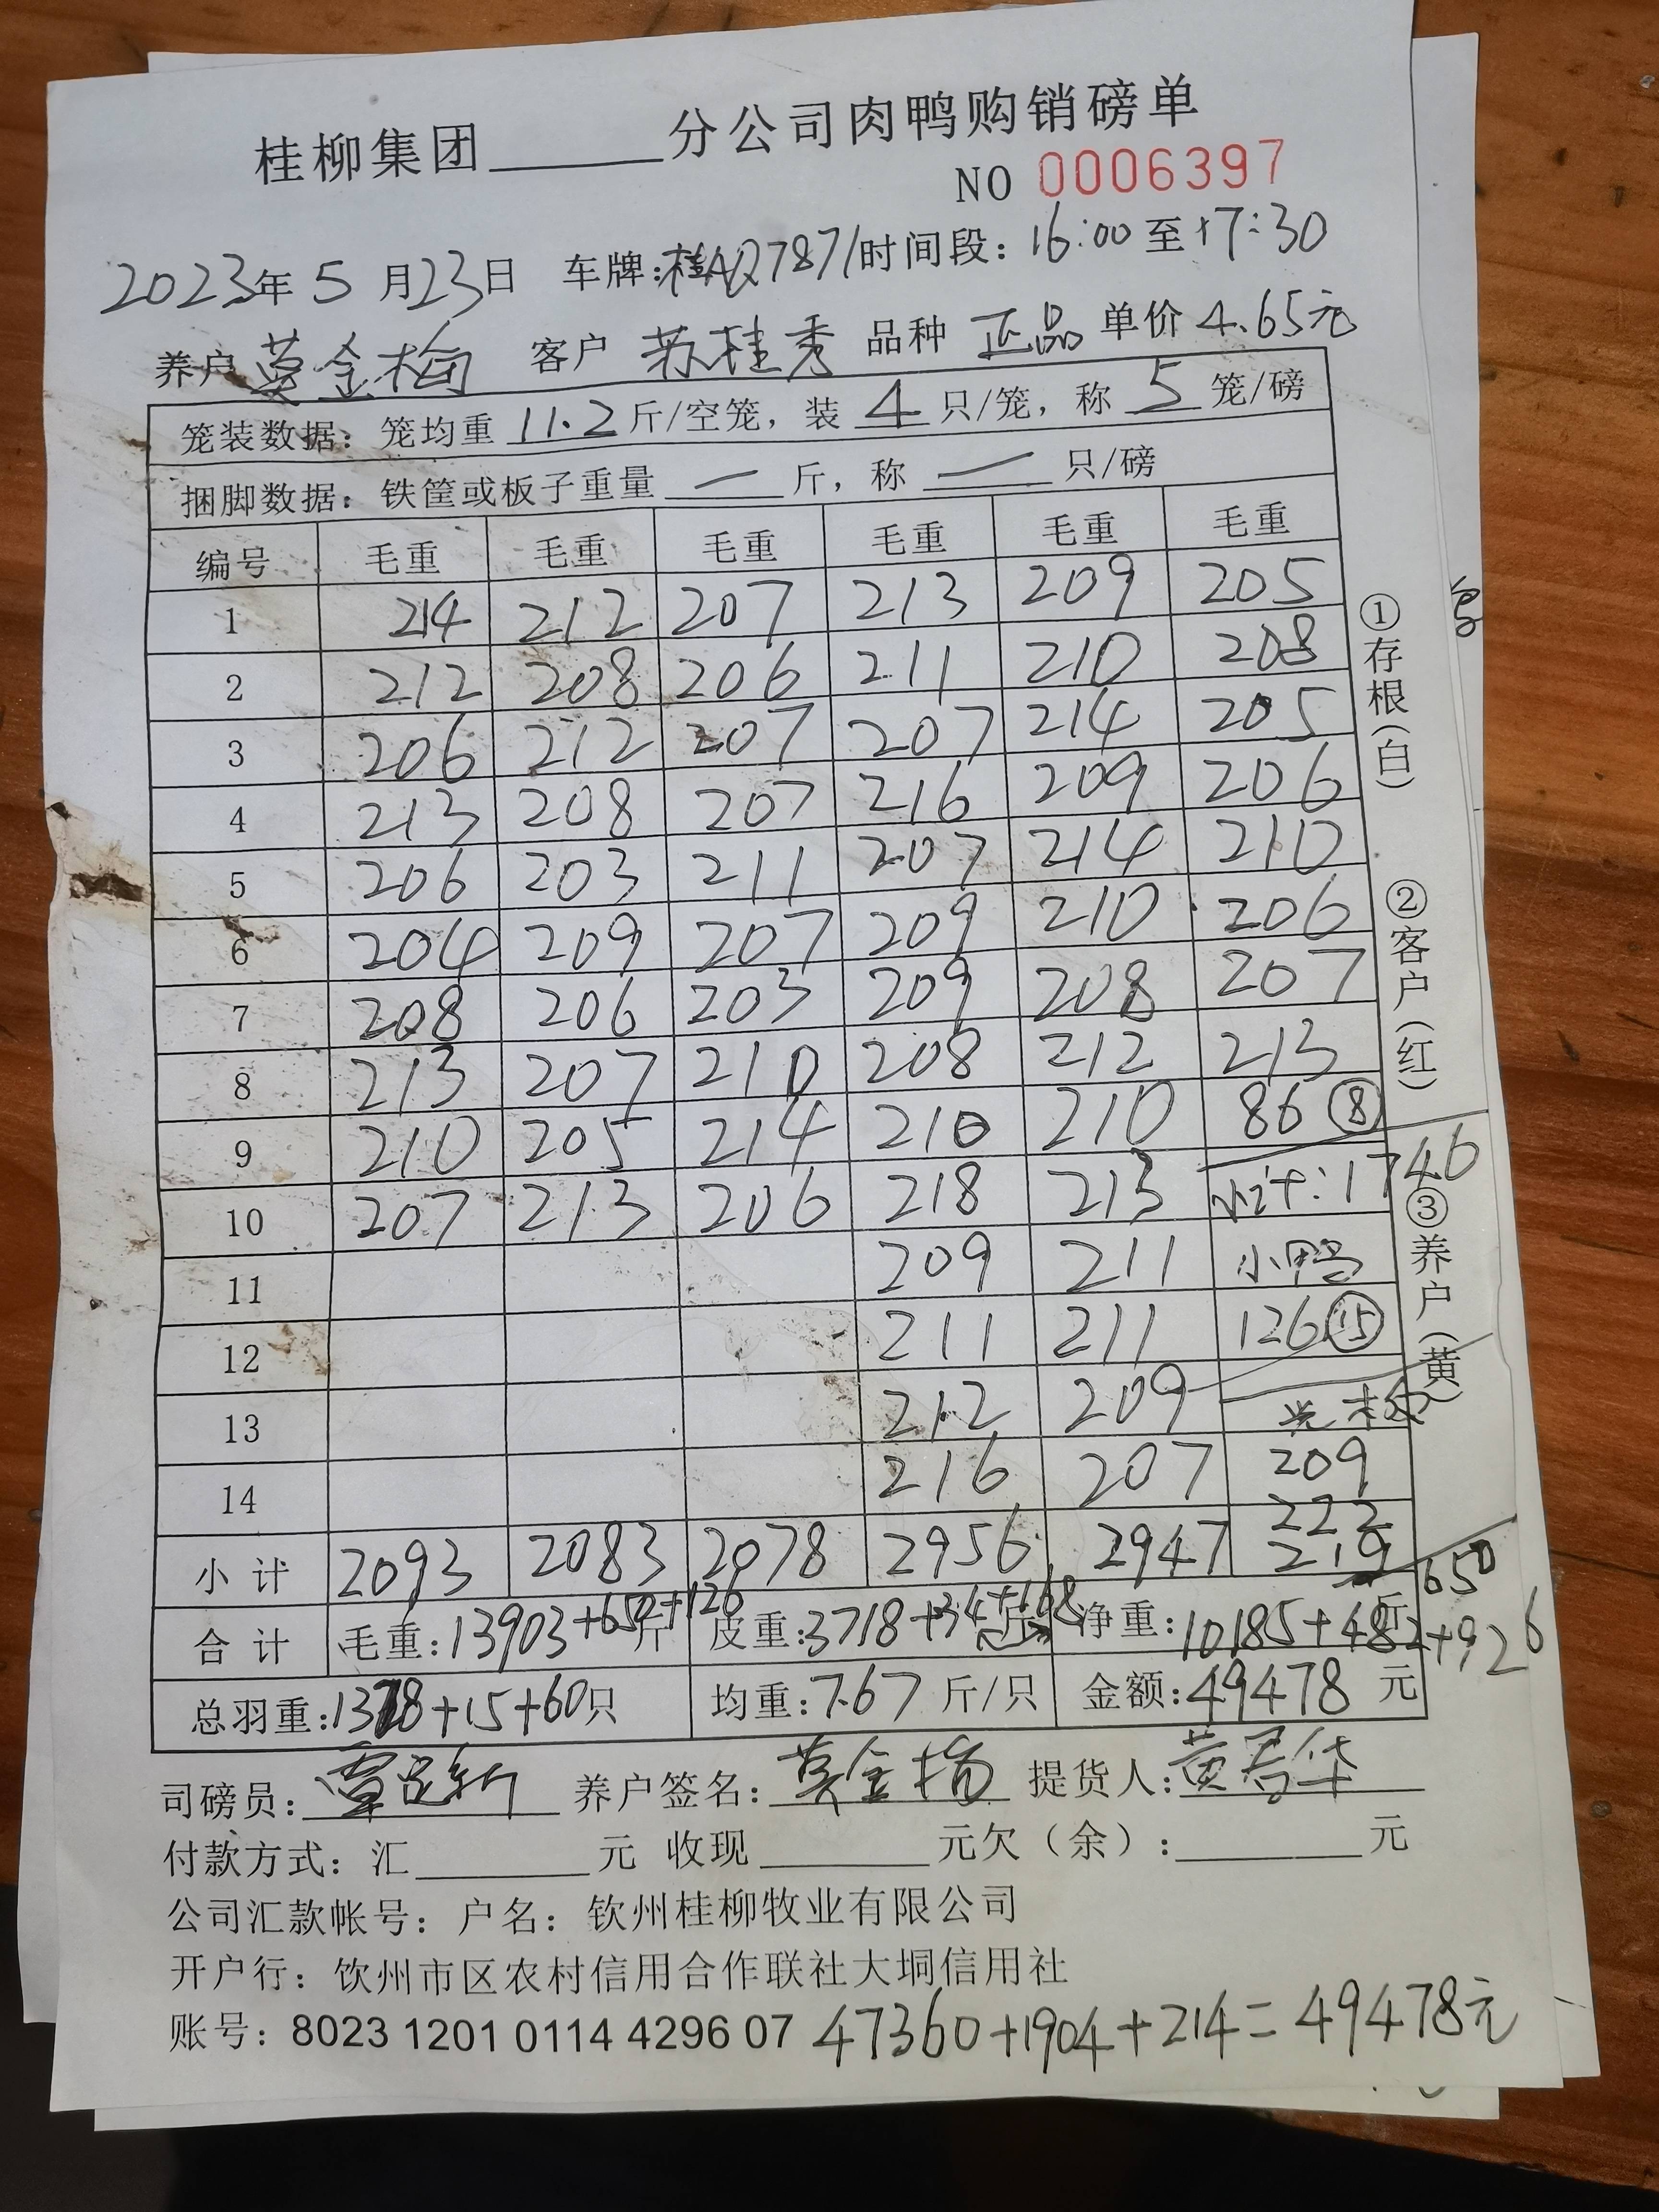 桂柳集团______分公司肉鸭购销磅单
NO 0006397
2023年5月23日 车牌:桂AQ7871时间段：16:00至17:30
养户莫金梅 客户 苏桂秀 品种 正品 单价4.65元
笼装数据：笼均重 11.2 斤/空笼，装 4 只/笼，称 5 笼/磅
捆脚数据：铁筐或板子重量 — 斤，称 — 只/磅
编号 毛重 毛重 毛重 毛重 毛重 毛重
1 214 212 207 213 209 205
2 212 208 206 211 210 208
3 206 212 207 207 214 205
4 213 208 207 216 209 206
5 206 203 211 207 214 210
6 204 209 207 209 210 206
7 208 206 203 209 208 207
8 213 207 210 208 212 213
9 210 205 214 210 210 86 ⑧
10 207 213 206 218 213 小计:1746
11 209 211 小鸭
12 211 211 126 ⑮
13 212 209
14 216 207 209
222
219
小计 2093 2083 2078 2956 2947 650
合计 毛重:13903+650+126斤 皮重:3718+34+168斤 净重:10185+482+92斤
总羽重:1328+15+60只 均重:7.67 斤/只 金额:49478 元
司磅员: 养户签名:莫金梅 提货人:黄君华
付款方式：汇______元 收现______元欠（余）:______元
公司汇款帐号：户名：钦州桂柳牧业有限公司
开户行：钦州市区农村信用合作联社大垌信用社
账号：8023 1201 0114 4296 07 47360+1904+214=49478元
①存根(白)
②客户(红)
③养户(黄)